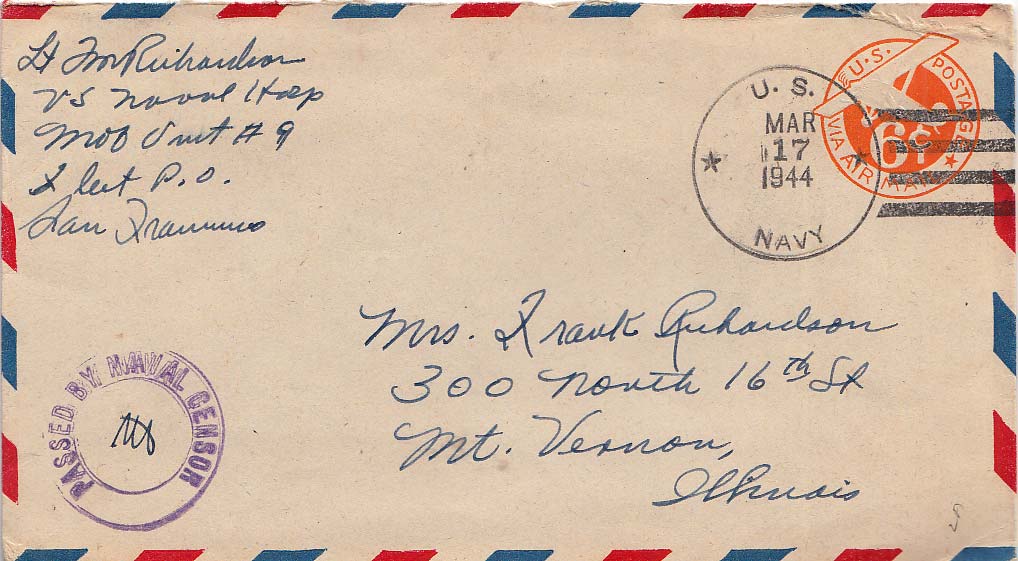 Lt FM Richardson
US Naval Hosp
Mob Unit # 9
Fleet P.O.
San Francisco
U. S.
MAR
17
1944
NAVY
U.S. POSTAGE
6¢
VIA AIR MAIL
Mrs. Frank Richardson
300 North 16th St
Mt. Vernon,
Illinois
PASSED BY NAVAL CENSOR